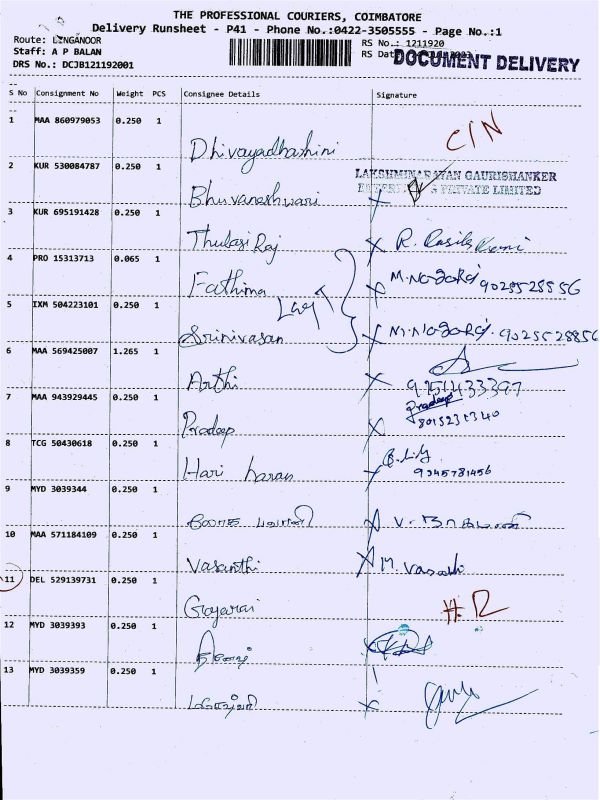 THE PROFESSIONAL COURIERS, COIMBATORE
Delivery Runsheet - P41 - Phone No.:0422-3505555 - Page No.:1
Route: LINGANOOR
RS No.: 1211920
Staff: A P BALAN
RS Dat
DOCUMENT DELIVERY
DRS No.: DCJB121192001
S No Consignment No Weight PCS Consignee Details Signature
1 MAA 860979053 0.250 1 Dhivayadharhini C/N
2 KUR 530084787 0.250 1 Bhuvaneshwari
LAKSHMINARAYAN GAURISHANKER
PRIVATE LIMITED
3 KUR 695191428 0.250 1 Thulasi Raj R.
4 PRO 15313713 0.065 1 Fathima M.
5 IXM 504223101 0.250 1 Srinivasan 9025528856
6 MAA 569425007 1.265 1 Arthi
7 MAA 943929445 0.250 1 Pradeep Pradeep
8 TCG 50430618 0.250 1 Hari haran
9345781456
9 MYD 3039344 0.250 1
10 MAA 571184109 0.250 1 Vasanthi M.
11 DEL 529139731 0.250 1
12 MYD 3039393 0.250 1
13 MYD 3039359 0.250 1